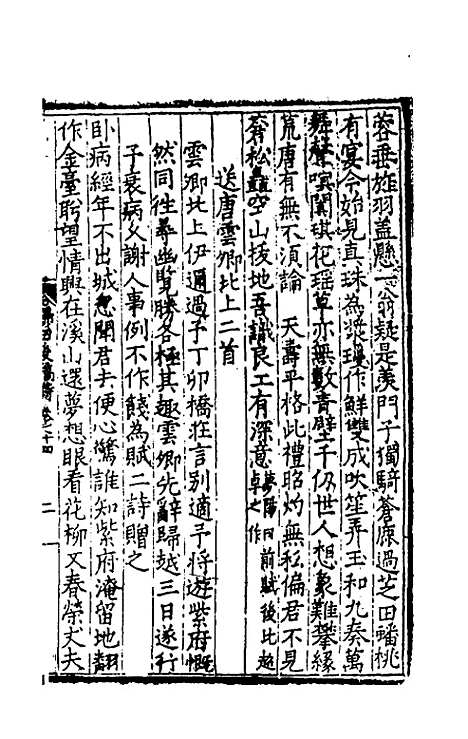 蓉垂旌羽蓋懸一翁疑是羡門子獨騎蒼鹿過芝田蟠桃
有宴今始見真珠為漿瓊作鮮雙成吹笙弄玉和九奏萬
舞聲嘽闐琪花瑤草亦無數青壁千仭世人想象難攀緣
荒唐有無不須論　天壽平格此禮昭灼無私偏君不見
脊松蠧空山棱地吾識良工有深意夢陽曰前賦後比超卓之作
送唐雲卿北上二首
雲卿北上伊邇過予丁卯橋莊言別適予將遊紫府慨
然同往尋幽覽勝各極其趣雲卿先辭歸越三日遂行
予衰病久謝人事例不作餞為賦二詩贈之
卧病經年不出城忽聞君去便心驚誰知紫府淹留地翻
作金臺盼望情興在溪山還夢想眼看花柳又春榮丈夫
卷之二十四
二